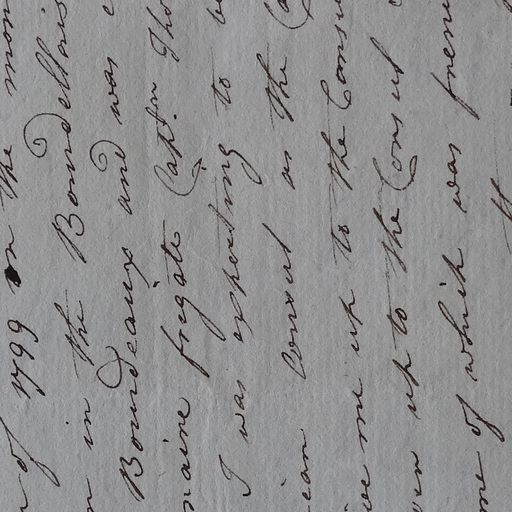 of 1799 in the mon
in the Bourdellois
Bourdeaux and was
maine frigate Captn. Tho
I was expecting to
ican Consul as the
ive me up to the Consu
ven up to the Consul
me of which was frem